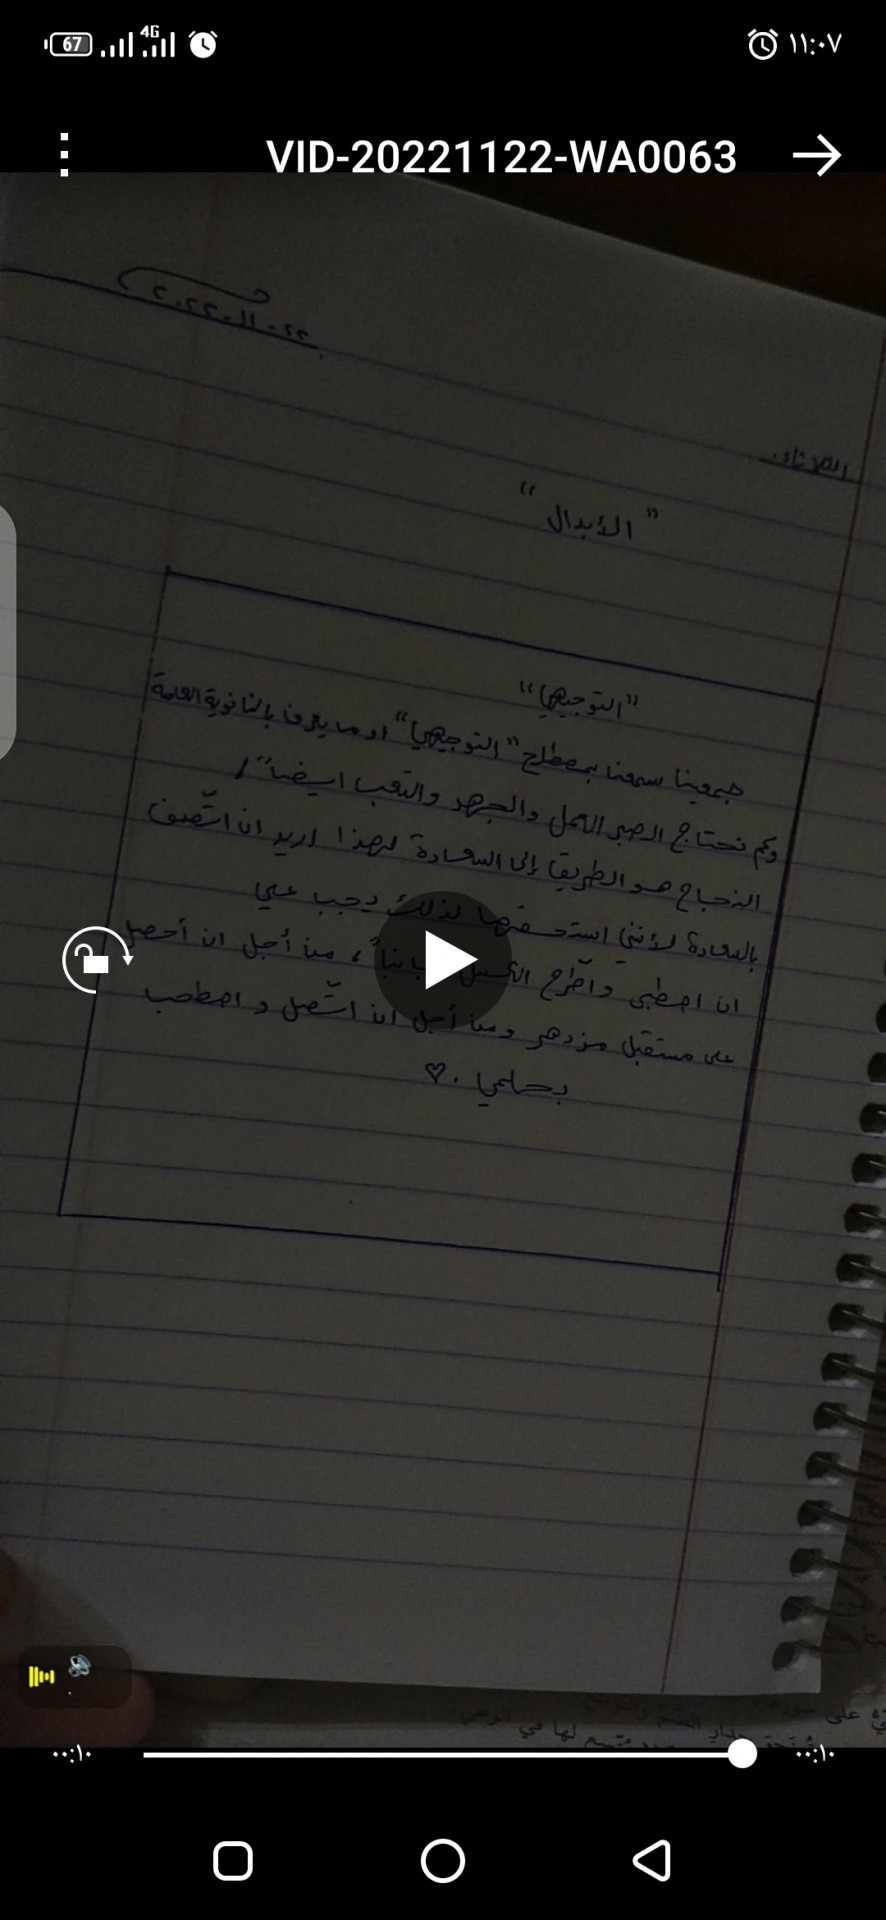 67 4G ١١:٠٧
VID-20221122-WA0063
٢٠٢٢-١١-٢٢
الثلاثاء.
"الأبدال"
"التوجيهي"
جميعنا سمعنا بمصطلح "التوجيهي" او ما يعرف بالثانوية العامة
وكم نحتاج الصبر العمل والجهد والتعب ايضاً،
النجاح هو الطريق إلى السعادة لهذا اريد ان
بالسعادة لأنني استحقها لذلك يجب علي
ان اصطبر واطّرح جانباً، من أجل ان أحصل
على مستقبل مزدهر ومن أجل ان اتّصل و اصطحب
بحلمي. ♡
على سورها
جدار القسم والتوسع
لها في الوحي.
٠٠:١٠ ٠٠:١٠